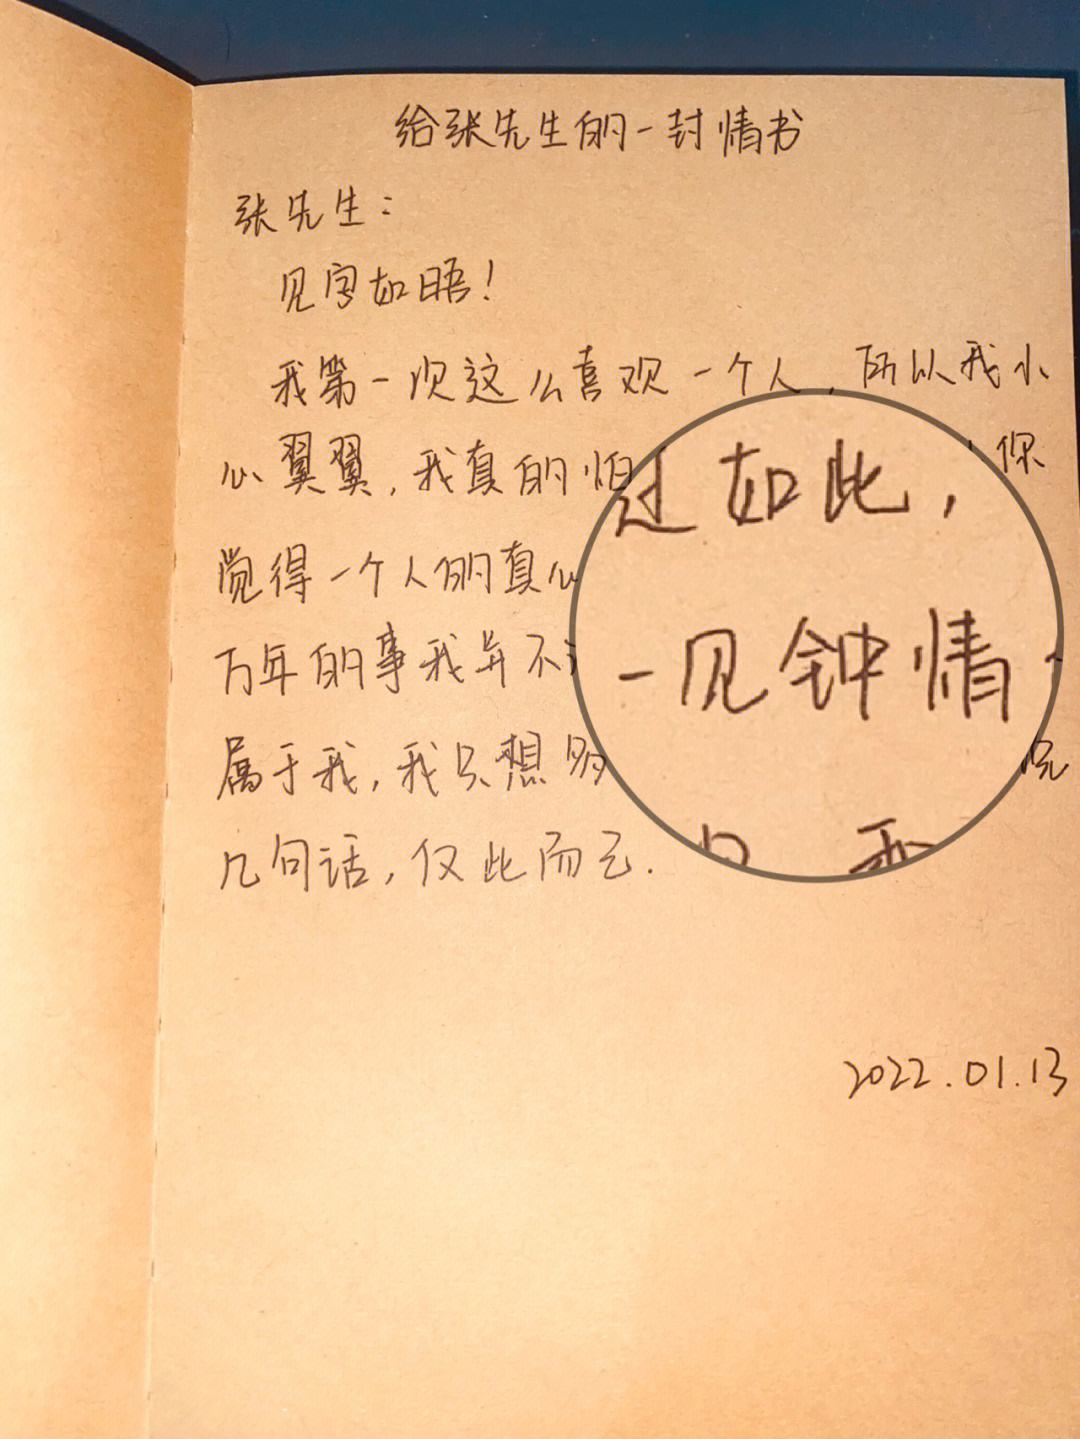 给张先生的一封情书
张先生：
见字如晤！
我第一次这么喜欢一个人，所以我小
心翼翼，我真的怕
你
过如此，
觉得一个人的真心
一见钟情
万年的事我并不
属于我，我只想多
几句话，仅此而已.
2022.01.13